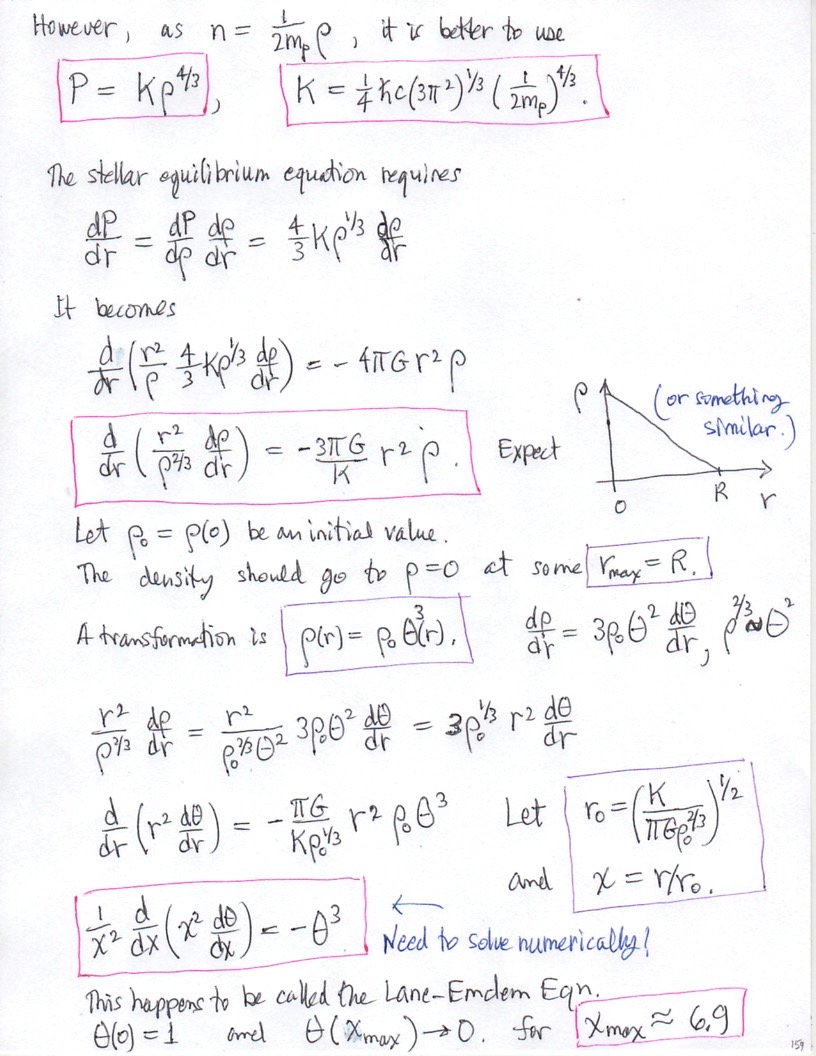 However, as n = 1/2mₚ ρ, it is better to use
P = Kρ^4/3, K = 1/4 ħc(3π²)^1/3 (1/2mₚ)^4/3.
The stellar equilibrium equation requires
dP/dr = dP/dρ dρ/dr = 4/3 Kρ^1/3 dρ/dr
It becomes
d/dr (r²/ρ 4/3 Kρ^1/3 dρ/dr) = - 4πG r² ρ
d/dr (r²/ρ^2/3 dρ/dr) = - 3πG/K r² ρ.
Expect
ρ
(or something
similar.)
0
R
r
Let ρ₀ = ρ(0) be an initial value.
The density should go to ρ=0 at some r_max = R.
A transformation is ρ(r) = ρ₀ θ³(r). dρ/dr = 3ρ₀θ² dθ/dr, ρ^2/3 ~ θ²
r²/ρ^2/3 dρ/dr = r²/ρ₀^2/3 θ² 3ρ₀θ² dθ/dr = 3ρ₀^1/3 r² dθ/dr
d/dr (r² dθ/dr) = - πG/Kρ₀^1/3 r² ρ₀θ³
Let r₀ = (K/πGρ₀^2/3)^1/2
and x = r/r₀.
1/x² d/dx (x² dθ/dx) = -θ³
← Need to solve numerically!
This happens to be called the Lane-Emdem Eqn.
θ(0) = 1 and θ(x_max) → 0. for x_max ≈ 6.9
159